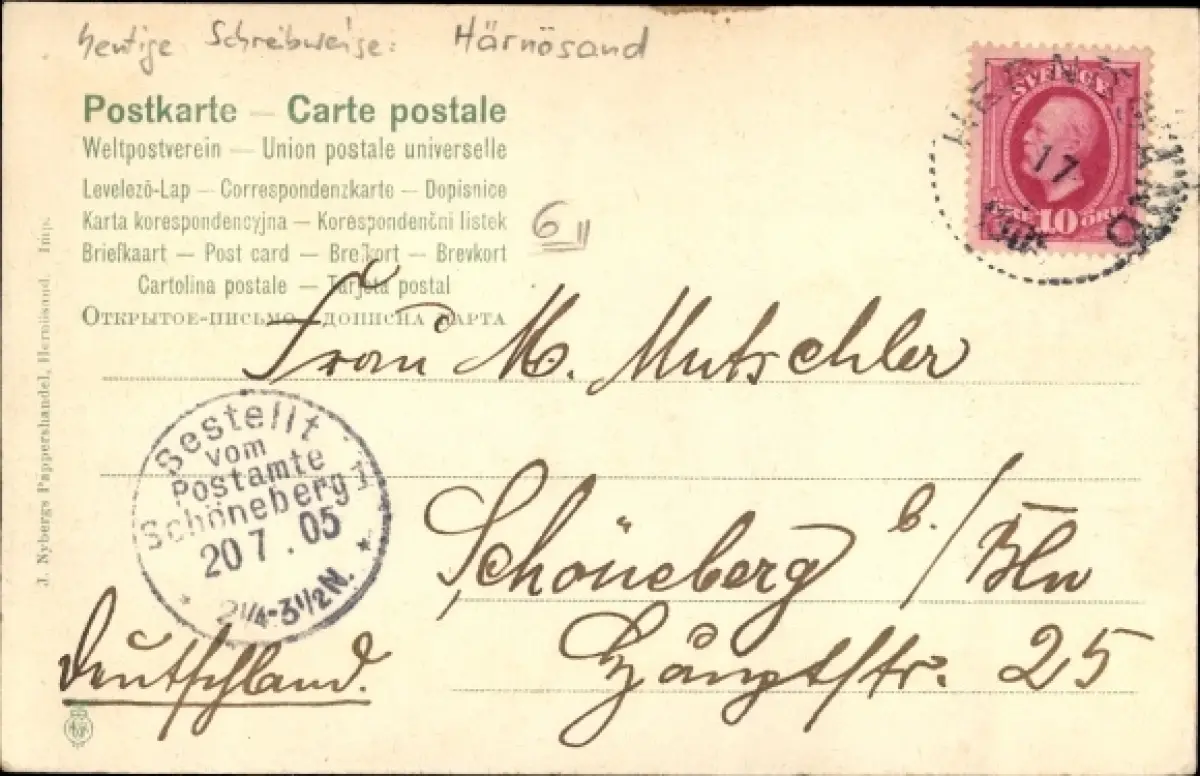 heutige Schreibweise: Härnösand
Postkarte — Carte postale
Weltpostverein — Union postale universelle
Levelező-Lap — Correspondenzkarte — Dopisnice
Karta korespondencyjna — Korespondenčni listek
Briefkaart — Post card — Brefkort — Brevkort
Cartolina postale — Tarjeta postal
Открытое-письмо — дописна карта
6 II
SVERIGE
17
10 ÖRE
HERNÖSAND
Frau M. Mutschler
Schöneberg b./Bln
Hauptstr. 25
Deutschland.
Bestellt
vom
Postamte
Schöneberg 1
20 7 . 05
* 2¼-3½N. *
J. Nybergs Pappershandel, Hernösand. Imp.